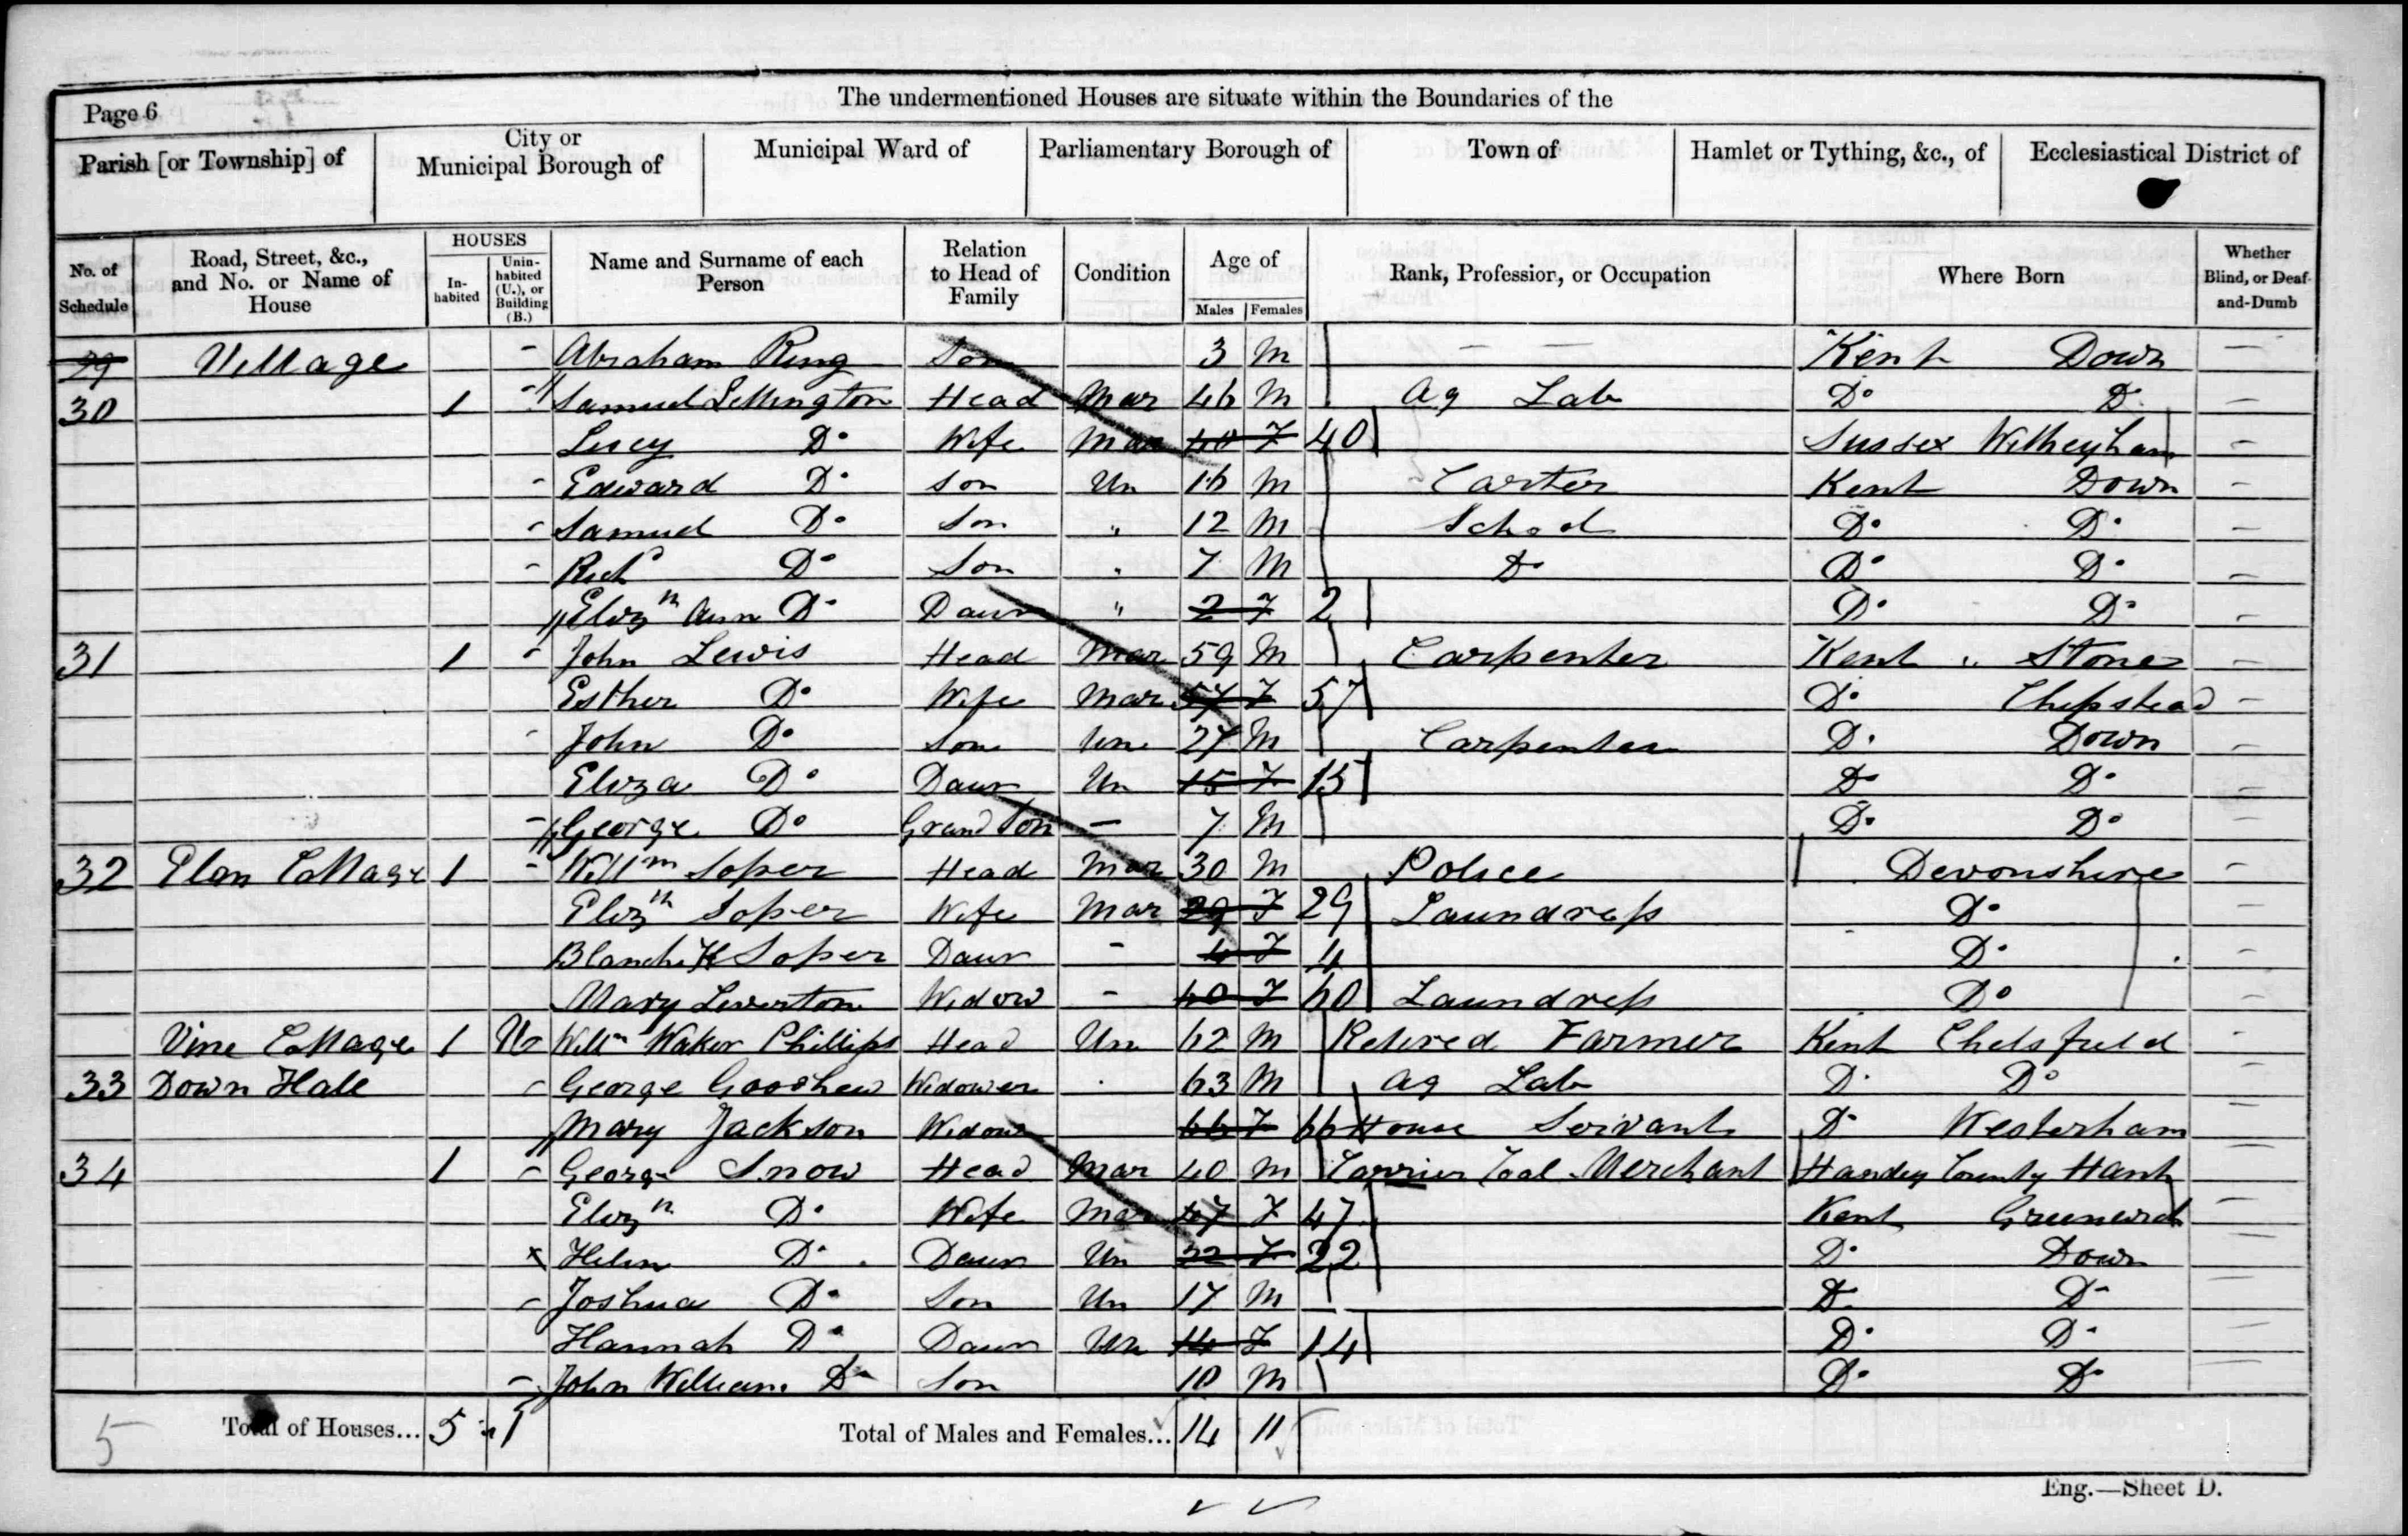 The undermentioned Houses are situate within the Boundaries of the
Page 6
Parish [or Township] of
City or Municipal Borough of
Municipal Ward of
Parliamentary Borough of
Town of
Hamlet or Tything, &c., of
Ecclesiastical District of
No. of Schedule
Road, Street, &c., and No. or Name of House
HOUSES
In-habited
Unin-habited (U.), or Building (B.)
Name and Surname of each Person
Relation to Head of Family
Condition
Age of
Males Females
Rank, Profession, or Occupation
Where Born
Whether Blind, or Deaf-and-Dumb
29 Village Abraham Ring Son 3 M Kent Down
30 1 Samuel Lettington Head Mar 46 M Ag Lab Do Do
Lucy Do Wife Mar 40 F 40 Sussex Witheyham
Edward Do Son Un 16 M Carter Kent Down
Samuel Do Son " 12 M School Do Do
Do Son 7 M Do Do Do
Elizh Ann Do Daur " 2 F 2 Do Do
31 1 John Lewis Head Mar 59 M Carpenter Kent " Stone
Esther Do Wife Mar 57 F 57 Do Chepstead
John Do Son Un 27 M Carpenter Do Down
Eliza Do Daur Un 15 F 15 Do Do
George Do Grand Son – 7 M Do Do
32 Cottage 1 Willm Soper Head Mar 30 M Police Devonshire
Elizh Soper Wife Mar 29 F 29 Laundress Do
Blanche K Soper Daur – 4 F 4 Do
Mary Leverton Widow – 60 F 60 Laundress Do
Vine Cottage 1 U Willm Waker Phillips Head Un 62 M Retired Farmer Kent Chelsfield
33 Down Hall George Goodhew Widower 63 M Ag Lab Do Do
Mary Jackson Widow 66 F 66 House Servant Do Westerham
34 1 George Snow Head Mar 40 M Carrier Coal Merchant County Hants
Elizh Do Wife Mar 47 F 47 Kent Greenwich
Helen Do Daur Un 22 F 22 Do Down
Joshua Do Son Un 17 M Do Do
Hannah Do Daur Un 14 F 14 Do Do
John William Do Son 10 M Do Do
5 Total of Houses... 5 1 Total of Males and Females... 14 11
Eng.—Sheet D.